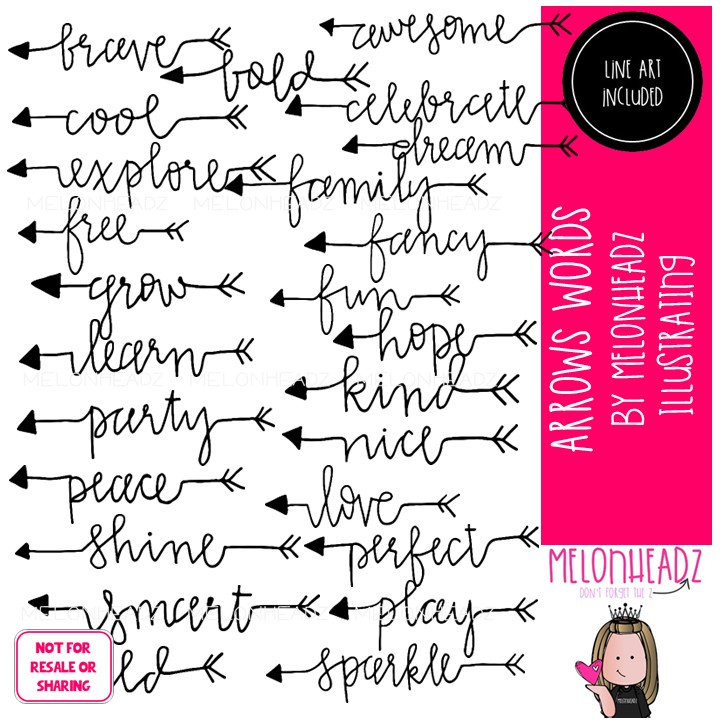 brave
awesome
bold
cool
celebrate
dream
explore
family
MELONHEADZ MELONHEADZ MELONHEADZ
free
fancy
grow
fun
learn
hope
MELONHEADZ MELONHEADZ MELONHEADZ
kind
party
nice
peace
love
shine
perfect
smart
play
MELONHEADZ MELONHEADZ MELONHEADZ
sparkle
NOT FOR
RESALE OR
SHARING
LINE ART
INCLUDED
ARROWS WORDS
BY MELONHEADZ
ILLUSTRATING
MELONHEADZ
DON'T FORGET THE Z
MELONHEADZ